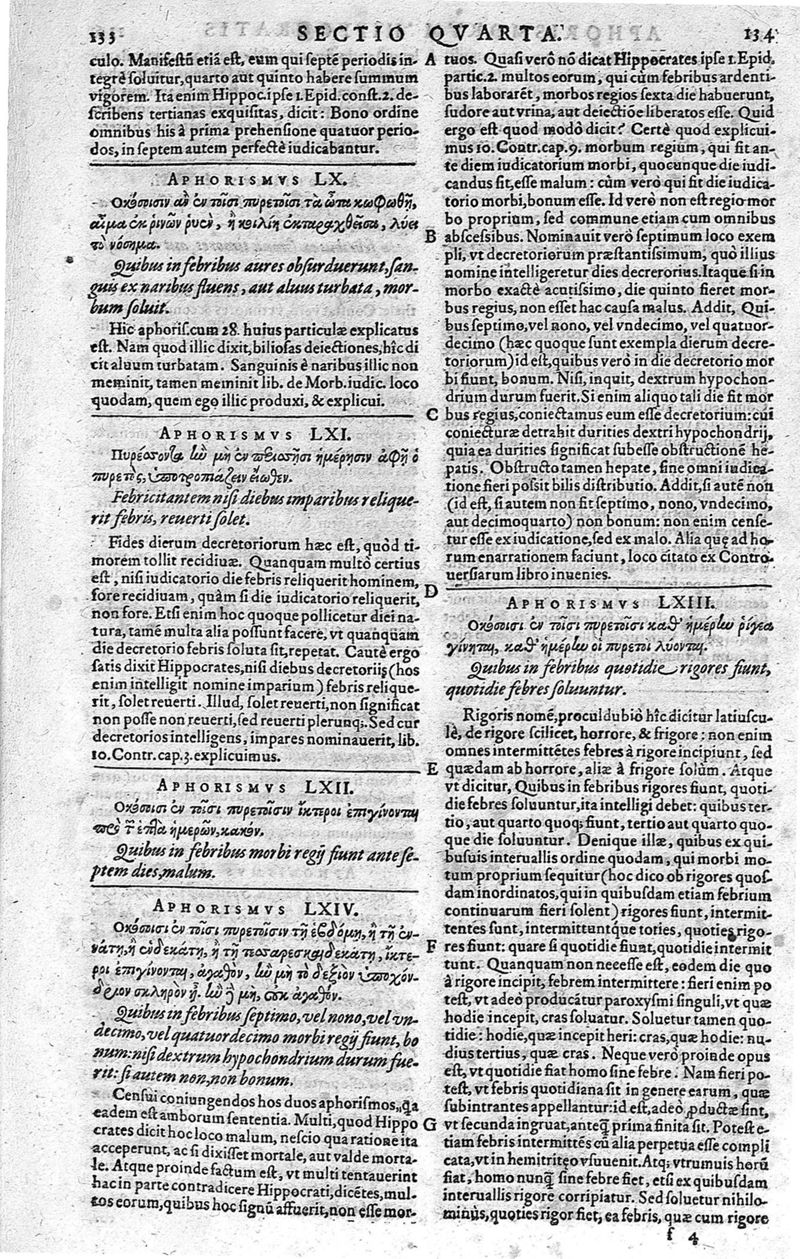 133 SECTIO QVARTA. 134
culo. Manifestũ etiã est, eum qui septẽ periodis in-
tegrè soluitur, quarto aut quinto habere summum
vigorem. Ita enim Hippoc. ipse 1. Epid. const. 2. de-
scribens tertianas exquisitas, dicit: Bono ordine
omnibus his à prima prehensione quatuor perio-
dos, in septem autem perfectè iudicabantur.
APHORISMVS LX.
Οκόσοισιν ἂν ἐν τοῖσι πυρετοῖσι τὰ ὦτα κωφωθῇ,
αἷμα ἐκ ῥινῶν ῥυὲν, ἢ κοιλίη ἐκταραχθεῖσα, λύει
τὸ νόσημα.
Quibus in febribus aures obsurduerunt, san-
guis ex naribus fluens, aut aluus turbata, mor-
bum soluit.
Hic aphoris. cum 28. huius particulæ explicatus
est. Nam quod illic dixit, biliosas deiectiones, hîc di
cit aluum turbatam. Sanguinis è naribus illic non
meminit, tamen meminit lib. de Morb. iudic. loco
quodam, quem ego illic produxi, & explicui.
APHORISMVS LXI.
Πυρέσσοντα ἢν μὴ ἐν περισσῇσι ἡμέρησιν ἀφῇ ὁ
πυρετὸς, ὑποτροπιάζειν εἴωθεν.
Febricitantem nisi diebus imparibus relique-
rit febris, reuerti solet.
Fides dierum decretoriorum hæc est, quòd ti-
morem tollit recidiuæ. Quanquam multò certius
est, nisi iudicatorio die febris reliquerit hominem,
fore recidiuam, quàm si die iudicatorio reliquerit,
non fore. Etsi enim hoc quoque pollicetur diei na-
tura, tamẽ multa alia possunt facere, vt quanquam
die decretorio febris soluta sit, repetat. Cautè ergo
satis dixit Hippocrates, nisi diebus decretoriis (hos
enim intelligit nomine imparium) febris relique-
rit, solet reuerti. Illud, solet reuerti, non significat
non posse non reuerti, sed reuerti plerunq;. Sed cur
decretorios intelligens, impares nominauerit, lib.
10. Contr. cap. 3. explicuimus.
APHORISMVS LXII.
Οκόσοισι ἐν τοῖσι πυρετοῖσιν ἴκτεροι ἐπιγίνονται
πρὸ τ῀ ἑπτὰ ἡμερῶν, κακόν.
Quibus in febribus morbi regij fiunt ante se-
ptem dies, malum.
APHORISMVS LXIV.
Οκόσοισι ἐν τοῖσι πυρετοῖσιν τῇ ἑβδόμῃ, ἢ τῇ ἐν-
νάτῃ, ἢ ἑνδεκάτῃ, ἢ τῇ τεσσαρεσκαιδεκάτῃ, ἴκτε-
ροι ἐπιγίνονται, ἀγαθὸν, ἢν μὴ τὸ δεξιὸν ὑποχόν-
δριον σκληρὸν ᾖ. ἢν ᵹ μὴ, οὐκ ἀγαθόν.
Quibus in febribus septimo, vel nono, vel vn-
decimo, vel quatuordecimo morbi regij fiunt, bo
num: nisi dextrum hypochondrium durum fue-
rit: si autem non, non bonum.
Censui coniungendos hos duos aphorismos, qa
eadem est amborum sententia. Multi, quod Hippo
crates dicit hoc loco malum, nescio qua ratione ita
acceperunt, ac si dixisset mortale, aut valde morta-
le. Atque proinde factum est, vt multi tentauerint
hac in parte contradicere Hippocrati, dicẽtes, mul-
tos eorum, quibus hoc signũ affuerit, non esse mor-
A tuos. Quasi verò nõ dicat Hippocrates ipse 1. Epid.
partic. 2. multos eorum, qui cùm febribus ardenti-
bus laborarẽt, morbos regios sexta die habuerunt,
sudore aut vrina, aut deiectiõe liberatos esse. Quid
ergo est quod modò dicit? Certè quod explicui-
mus 10. Contr. cap. 9. morbum regium, qui fit an-
te diem iudicatorium morbi, quocunque die iudi-
candus sit, esse malum: cùm verò qui fit die iudica-
torio morbi, bonum esse. Id verò non est regio mor
bo proprium, sed commune etiam cum omnibus
B abscessibus. Nominauit verò septimum loco exem
pli, vt decretoriorum præstantissimum, quò illius
nomine intelligeretur dies decrerorius. Itaque si in
morbo exactè acutissimo, die quinto fieret mor-
bus regius, non esset hac causa malus. Addit, Qui-
bus septimo, vel nono, vel vndecimo, vel quatuor-
decimo (hæc quoque sunt exempla dierum decre-
toriorum) id est, quibus verò in die decretorio mor
bi fiunt, bonum. Nisi, inquit, dextrum hypochon-
drium durum fuerit. Si enim aliquo tali die fit mor
C bus regius, coniectamus eum esse decretorium: cui
coniecturæ detrahit durities dextri hypochondrij,
quia ea durities significat subesse obstructionẽ he-
patis. Obstructo tamen hepate, sine omni iudica-
tione fieri possit bilis distributio. Addit, si autẽ non
(id est, si autem non fit septimo, nono, vndecimo,
aut decimoquarto) non bonum: non enim cense-
tur esse ex iudicatione, sed ex malo. Alia quę ad ho-
rum enarrationem faciunt, loco citato ex Contro-
uersiarum libro inuenies.
D
APHORISMVS LXIII.
Οκόσοισι ἐν τοῖσι πυρετοῖσι καθ' ἡμέρην ῥίγεα
γίνηται, καθ' ἡμέρην οἱ πυρετοὶ λύονται.
Quibus in febribus quotidie rigores fiunt,
quotidie febres soluuntur.
Rigoris nomẽ, proculdubiò hîc dicitur latiuscu-
lè, de rigore scilicet, horrore, & frigore: non enim
omnes intermittẽtes febres à rigore incipiunt, sed
E quædam ab horrore, aliæ à frigore solũm. Atque
vt dicitur, Quibus in febribus rigores fiunt, quoti-
die febres soluuntur, ita intelligi debet: quibus ter-
tio, aut quarto quoq; fiunt, tertio aut quarto quo-
que die soluuntur. Denique illæ, quibus ex qui-
busuis interuallis ordine quodam, qui morbi mo-
tum proprium sequitur (hoc dico ob rigores quos-
dam inordinatos, qui in quibusdam etiam febrium
continuarum fieri solent) rigores fiunt, intermit-
tentes sunt, intermittuntque toties, quoties rigo-
F res fiunt: quare si quotidie fiunt, quotidie intermit
tunt. Quanquam non necesse est, eodem die quo
à rigore incipit, febrem intermittere: fieri enim po
test, vt adeò producãtur paroxysmi singuli, vt quæ
hodie incepit, cras soluatur. Soluetur tamen quo-
tidie: hodie, quæ incepit heri: cras, quæ hodie: nu-
dius tertius, quæ cras. Neque verò proinde opus
est, vt quotidie fiat homo sine febre. Nam fieri po-
test, vt febris quotidiana sit in genere earum, quæ
subintrantes appellantur: id est, adeò ꝓductæ sint,
G vt secunda ingruat, anteq̃ prima finita sit. Potest e-
tiam febris intermittẽs cũ alia perpetua esse compli
cata, vt in hemitriteo vsuuenit. Atq; vtrumuis horũ
fiat, homo nunq̃ sine febre fiet, etsi ex quibusdam
interuallis rigore corripiatur. Sed soluetur nihilo-
minùs, quoties rigor fiet, ea febris, quæ cum rigore
f 4